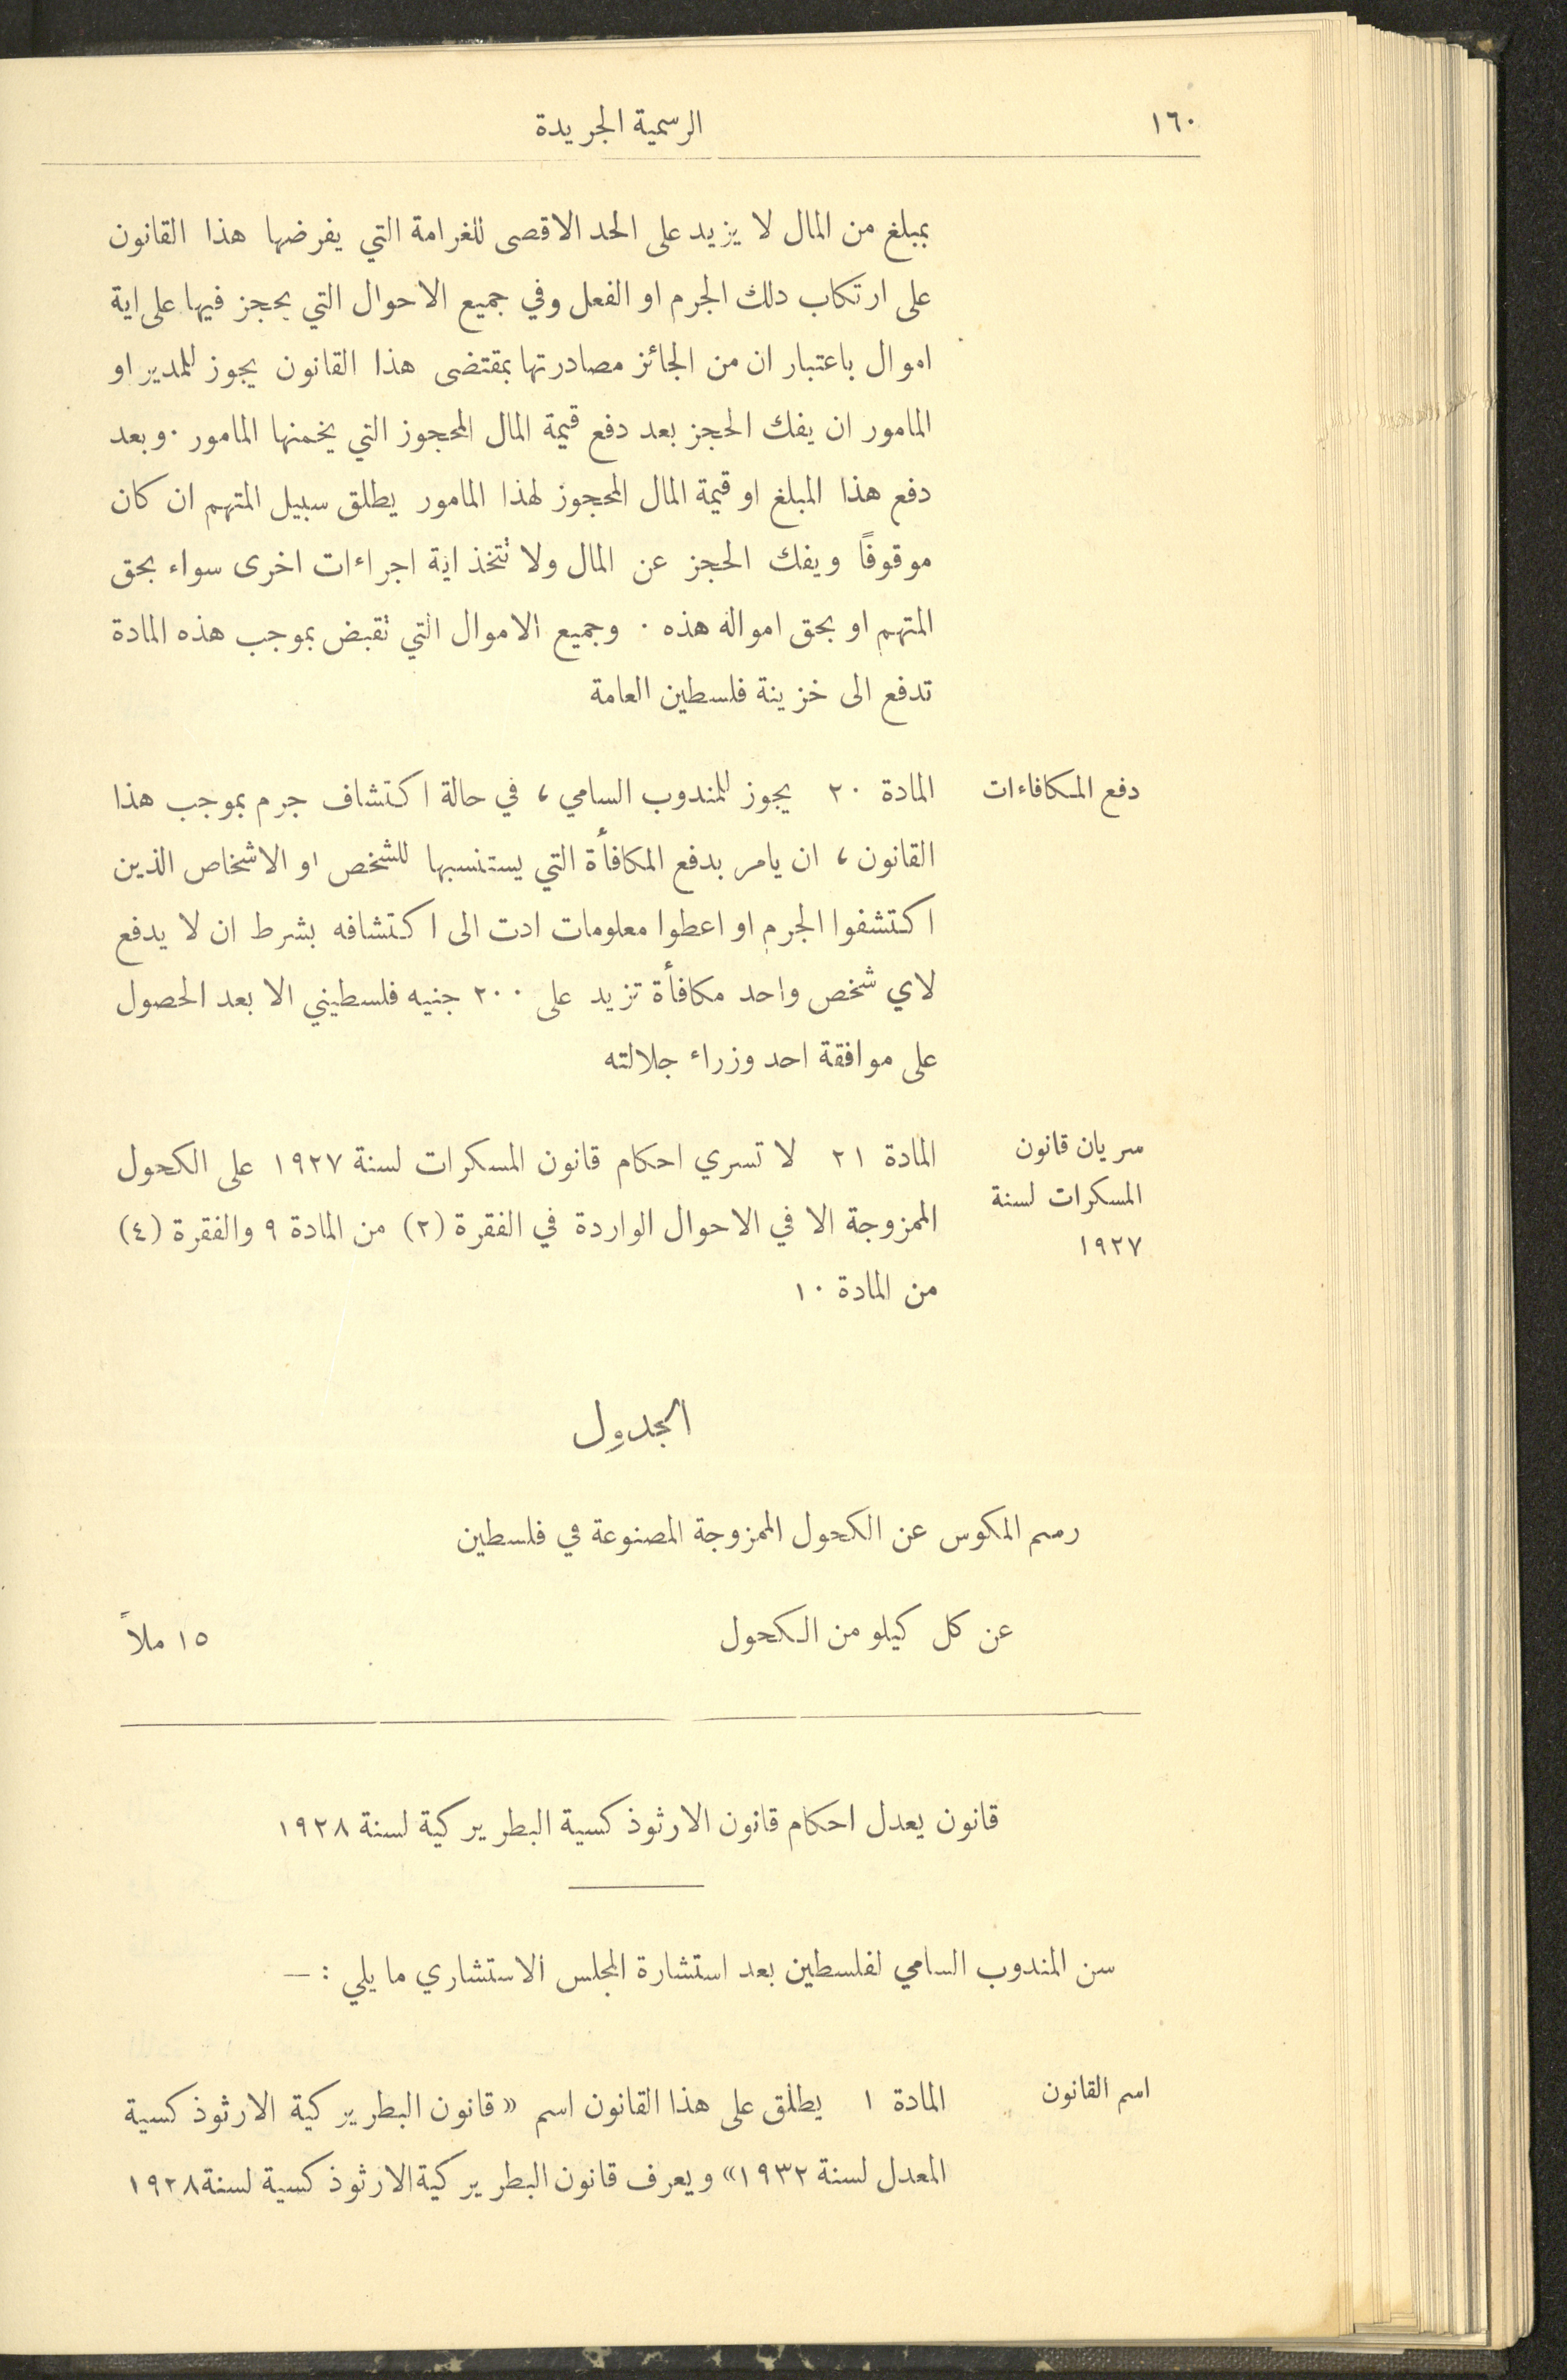 ١٦٠
الرسمية الجريدة
بمبلغ من المال لا يزيد على الحد الاقصى للغرامة التي يفرضها هذا القانون
على ارتكاب دلك الجرم او الفعل وفي جميع الاحوال التي يحجز فيها على اية
اموال باعتبار ان من الجائز مصادرتها بمقتضى هذا القانون يجوز للمدير او
المامور ان يفك الحجز بعد دفع قيمة المال المحجوز التي يخمنها المامور ٠ وبعد
دفع هذا المبلغ او قيمة المال المحجوز لهذا المامور يطلق سبيل المتهم ان كان
موقوفاً ويفك الحجز عن المال ولا تتخذ اية اجراءات اخرى سواء بحق
المتهم او بحق امواله هذه ٠ وجميع الاموال التي تقبض بموجب هذه المادة
تدفع الى خزينة فلسطين العامة
دفع المكافاءات
المادة ٢٠ يجوز للمندوب السامي ، في حالة اكتشاف جرم بموجب هذا
القانون ، ان يامر بدفع المكافأة التي يستنسبها للشخص او الاشخاص الذين
اكتشفوا الجرم او اعطوا معلومات ادت الى اكتشافه بشرط ان لا يدفع
لاي شخص واحد مكافأة تزيد على ٢٠٠ جنيه فلسطيني الا بعد الحصول
على موافقة احد وزراء جلالته
سريان قانون
المسكرات لسنة
١٩٢٧
المادة ٢١ لا تسري احكام قانون المسكرات لسنة ١٩٢٧ على الكحول
الممزوجة الا في الاحوال الواردة في الفقرة (٢) من المادة ٩ والفقرة (٤)
من المادة ١٠
الجدول
رسم المكوس عن الكحول الممزوجة المصنوعة في فلسطين
عن كل كيلو من الكحول ١٥ ملاً
قانون يعدل احكام قانون الارثوذكسية البطريركية لسنة ١٩٢٨
سن المندوب السامي لفلسطين بعد استشارة المجلس الاستشاري ما يلي : —
اسم القانون
المادة ١ يطلق على هذا القانون اسم «قانون البطريركية الارثوذكسية
المعدل لسنة ١٩٣٢» ويعرف قانون البطريركية الارثوذكسية لسنة ١٩٢٨